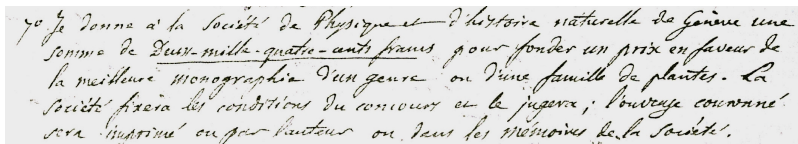 7º Je donne à la Société de Physique et d'histoire naturelle de Genève une
somme de Deux-mille-quatre-cents francs pour fonder un prix en faveur de
la meilleure monographie d'un genre ou d'une famille de plantes. La
Société fixera les conditions du concours et le jugera ; l'ouvrage couronné
sera imprimé ou par l'auteur ou dans les mémoires de la Société.